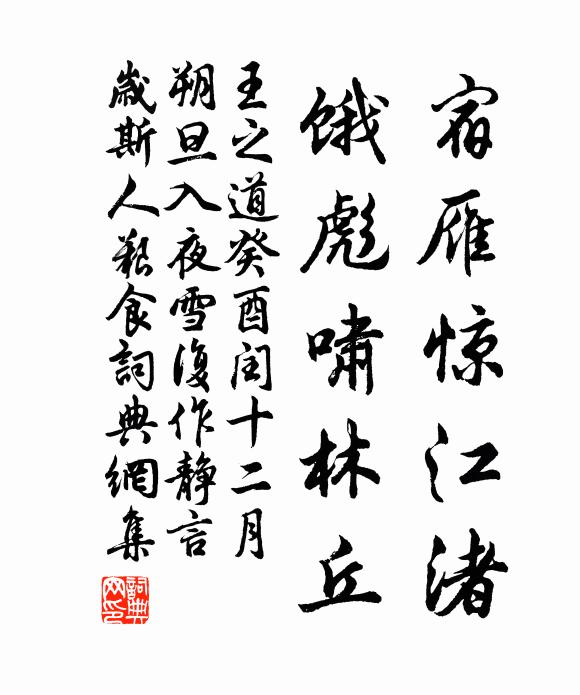 宿雁惊江渚
饿彪啸林丘
王之道癸酉闰十二月
朔旦入夜雪復作静言
歲斯人艰食詞典網集
詞典
网印